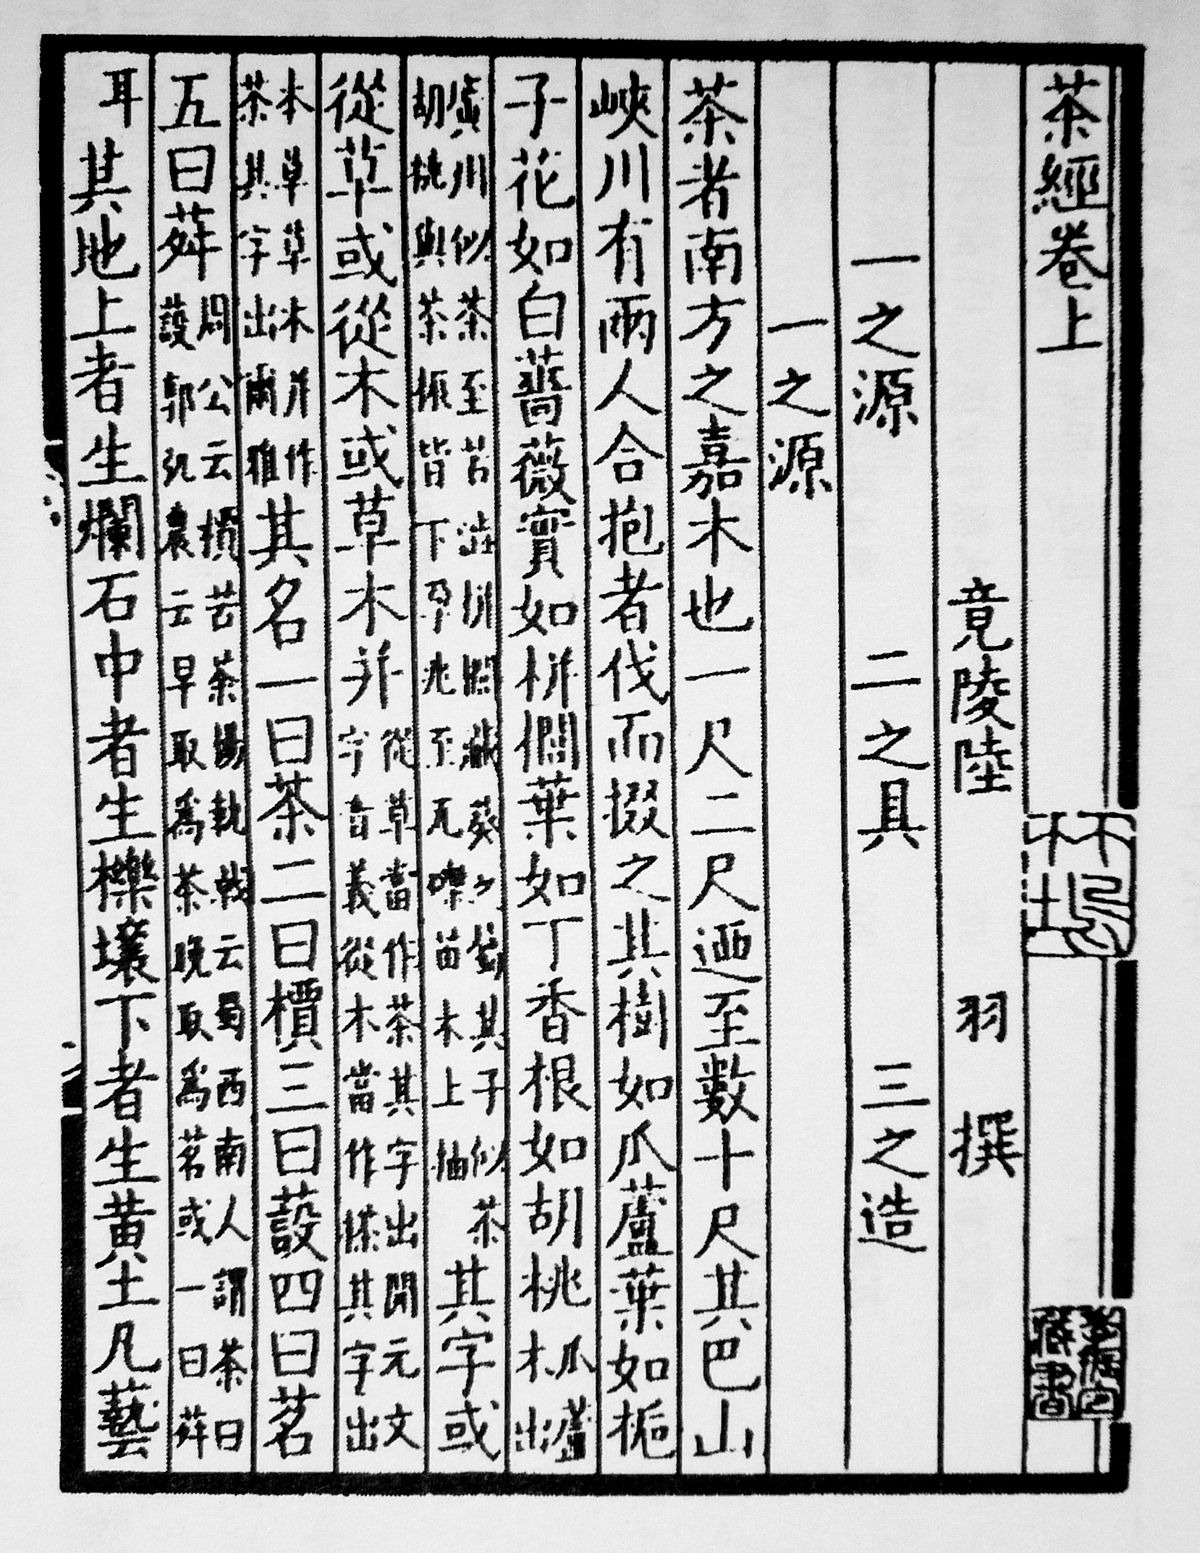 茶經卷上
竟陵陸 羽 撰
一之源 二之具 三之造
一之源
茶者南方之嘉木也一尺二尺迺至數十尺其巴山
峽川有兩人合抱者伐而掇之其樹如瓜蘆葉如梔
子花如白薔薇實如栟櫚葉如丁香根如胡桃瓜蘆木出
廣川似茶至苦澁栟櫚蒲葵之屬其子似茶胡桃與茶根皆下孕兆至瓦礫苗木上抽其字或
從草或從木或草木并從草當作茶其字出開元文字音義從木當作搽其字出
本草草木并作荼其字出爾雅其名一曰茶二曰檟三曰蔎四曰茗
五曰荈周公云檟苦荼揚執戟云蜀西南人謂茶曰蔎郭弘農云早取爲茶晚取爲茗或一曰荈
耳其地上者生爛石中者生櫟壤下者生黄土凡藝
藏書